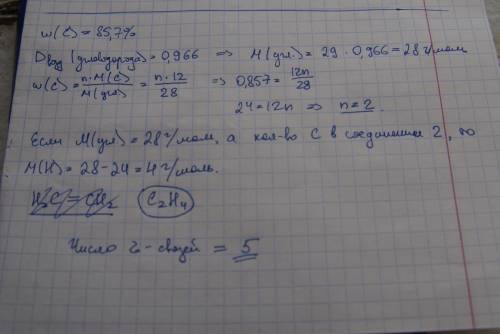 w(C) = 85,7%
Dвозд (углеводорода) = 0,966 => M(угл.) = 29 · 0,966 = 28 г/моль
w(C) = n·M(C)/M(угл) = n·12/28 => 0,857 = 12n/28
24 = 12n => n = 2.
Если M(угл) = 28 г/моль, а кол-во C в соединении 2, то
M(H) = 28 - 24 = 4 г/моль.
H₂C=CH₂ C₂H₄
Число σ-связей = 5